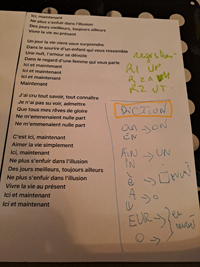 Ici, maintenant
Ne plus s'enfuir dans l'illusion
Des jours meilleurs, toujours ailleurs
Vivre la vie au présent
Un jour la vie vient vous surprendre
Dans le sourire d'un enfant qui vous ressemble
Une nuit, l'amour se dévoile
Dans le regard d'une femme qui vous parle
Ici et maintenant
Ici et maintenant
Ici et maintenant
Maintenant
J'ai cru tout savoir, tout connaître
Je n'ai pas su voir, admettre
Que tous mes rêves de gloire
Ne m'emmenaient nulle part
Ne m'emmenaient nulle part
C'est ici, maintenant
Aimer la vie simplement
Ici, maintenant
Ne plus s'enfuir dans l'illusion
Des jours meilleurs, toujours ailleurs
Ne plus s'enfuir dans l'illusion
Vivre la vie au présent
Ici et maintenant
Ici et maintenant
R1 UP
R2 UT
DICTION
an → ON
EN
AIN → UN
IN
A → O
EUR →
O →